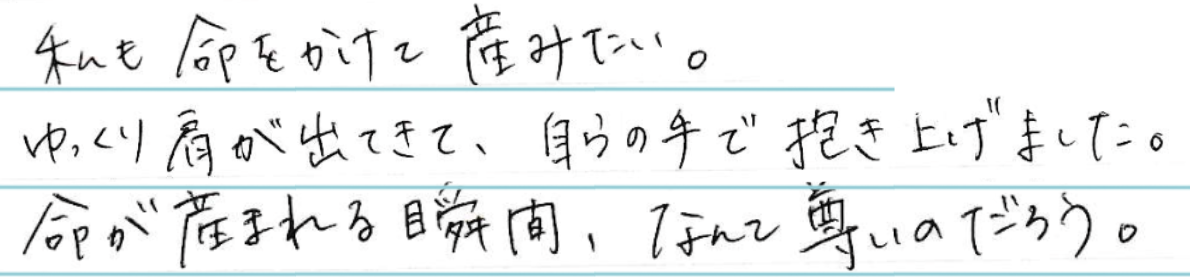 私も命をかけて産みたい。
ゆっくり肩が出てきて、自らの手で抱き上げました。
命が産まれる瞬間、なんて尊いのだろう。